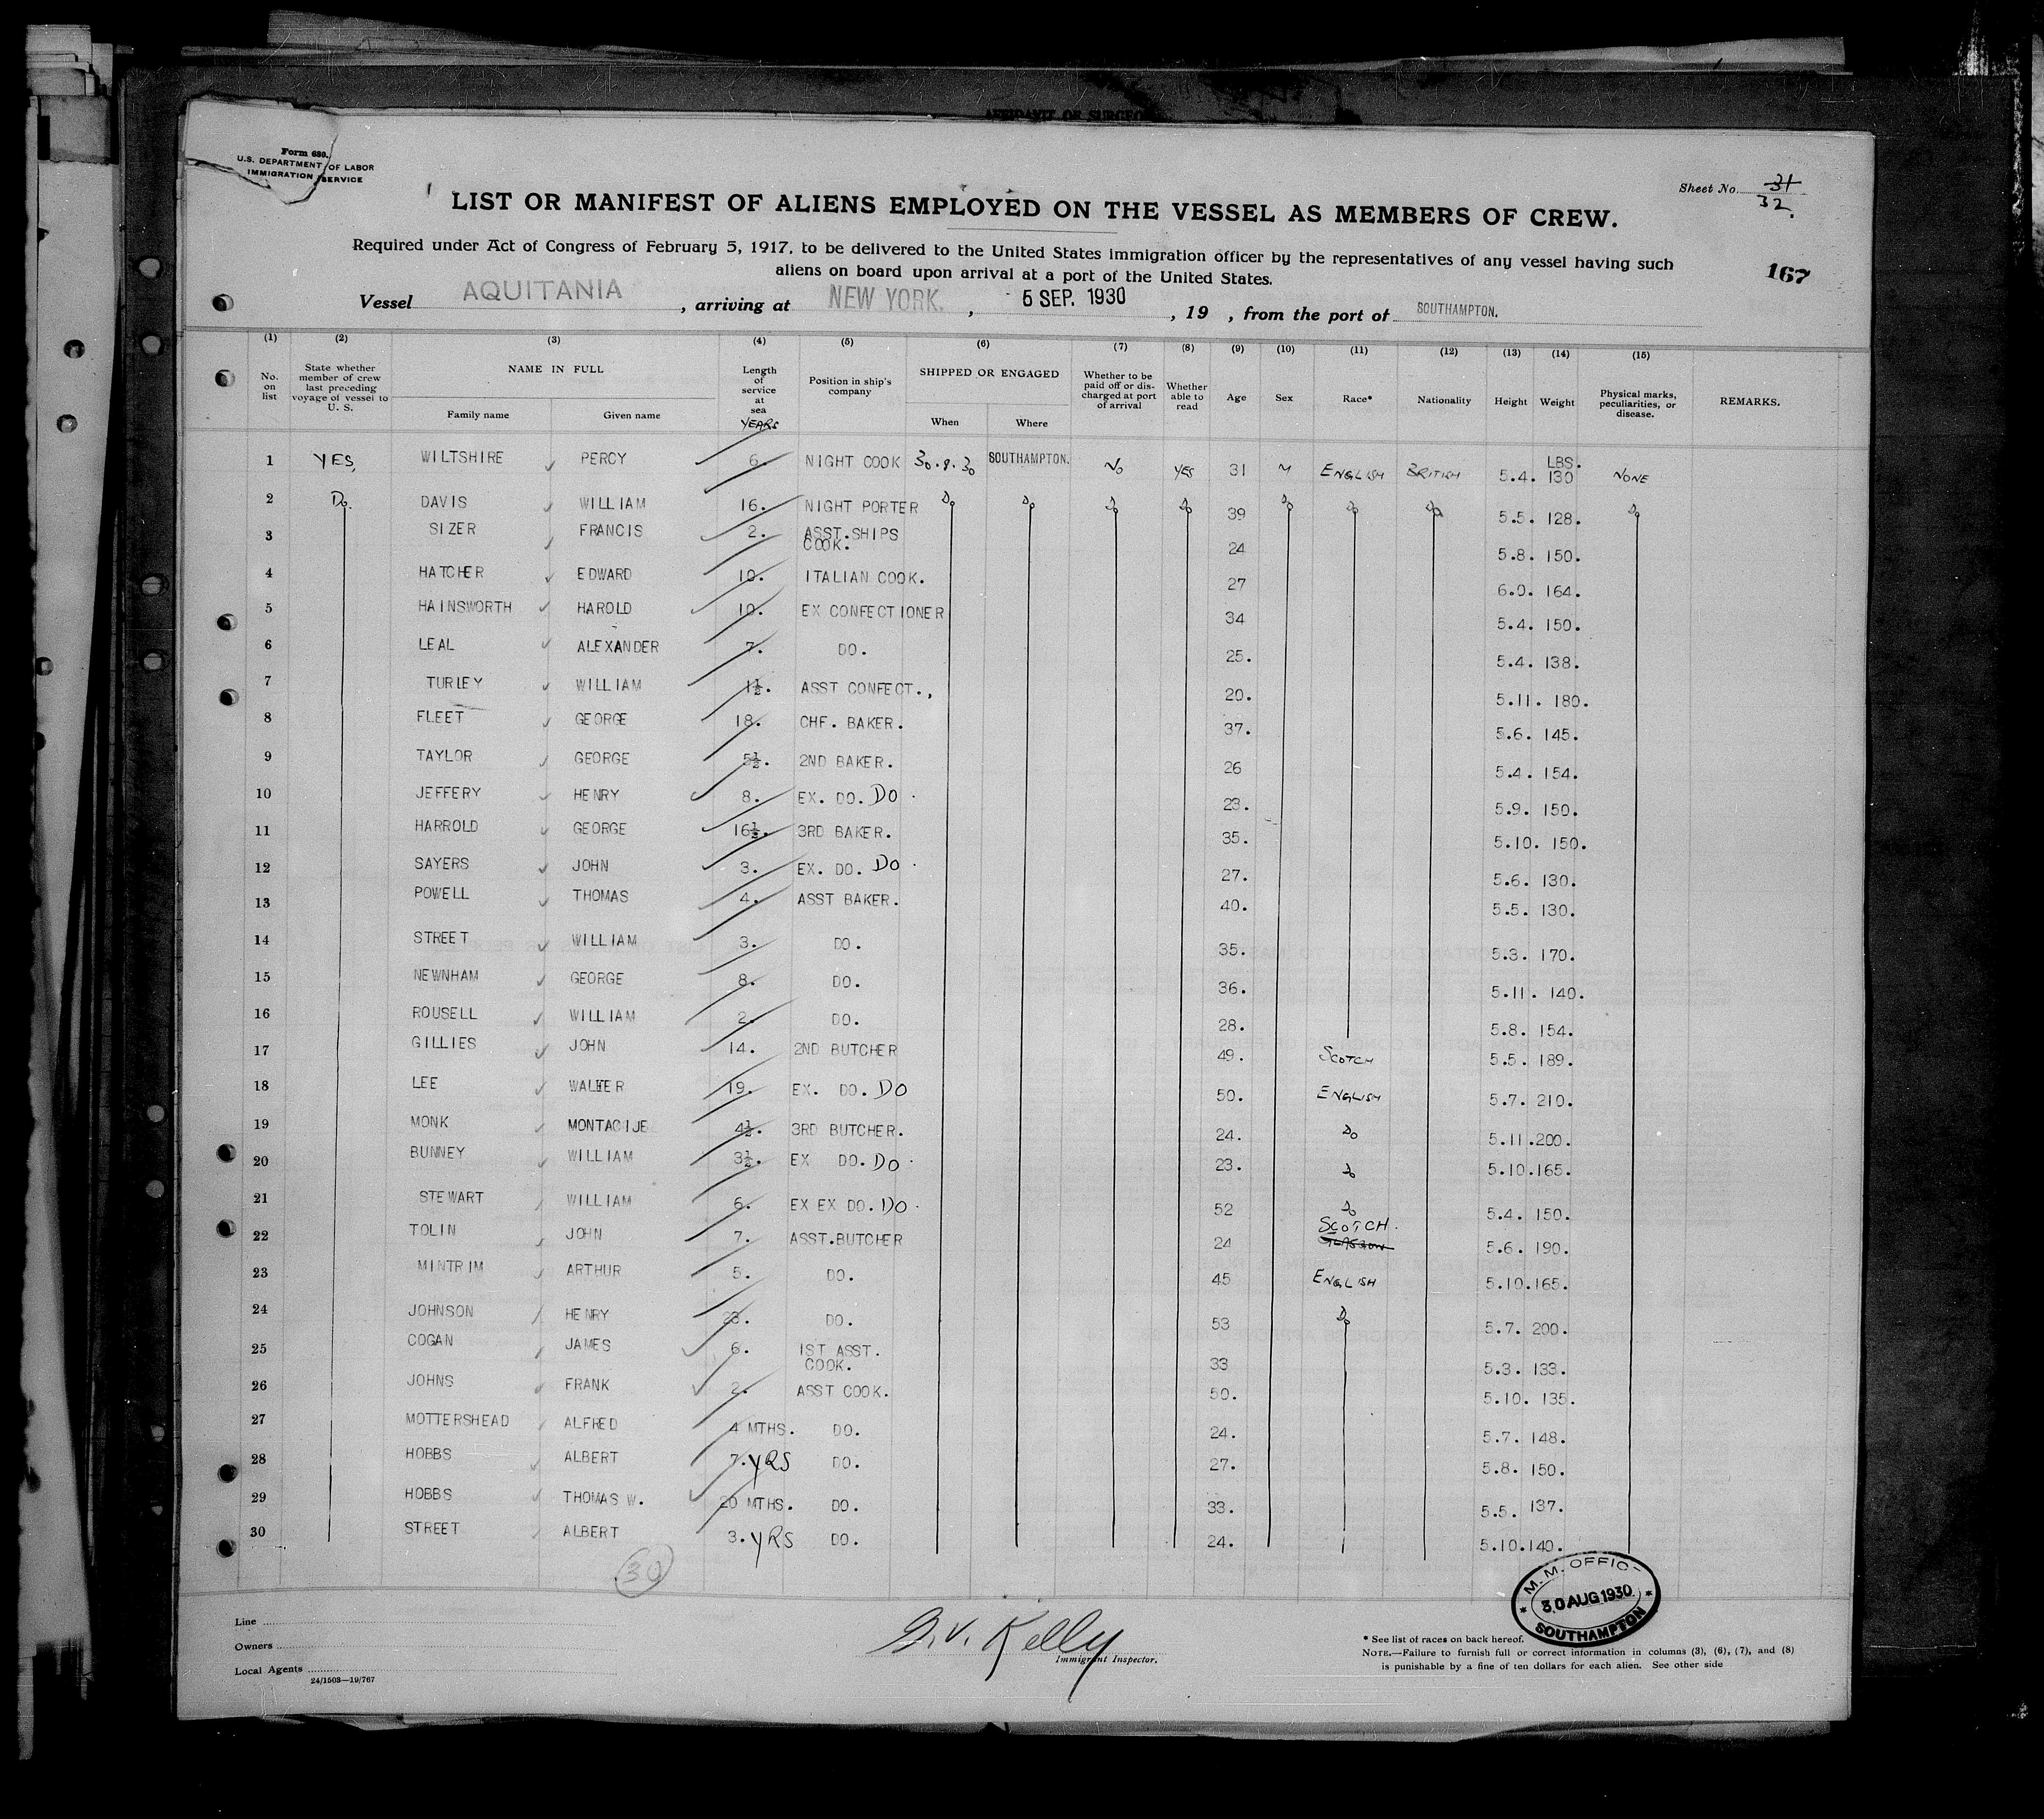 AFFIDAVIT OF SURGEO
Form 680.
U.S. DEPARTMENT OF LABOR
IMMIGRATION SERVICE
Sheet No. 31
32.
LIST OR MANIFEST OF ALIENS EMPLOYED ON THE VESSEL AS MEMBERS OF CREW.
Required under Act of Congress of February 5, 1917, to be delivered to the United States immigration officer by the representatives of any vessel having such
aliens on board upon arrival at a port of the United States.
167
Vessel AQUITANIA, arriving at NEW YORK., 5 SEP. 1930, 19 , from the port of SOUTHAMPTON.
(1) (2) (3) (4) (5) (6) (7) (8) (9) (10) (11) (12) (13) (14) (15)
No. on list State whether member of crew last preceding voyage of vessel to U. S. NAME IN FULL Family name Given name Length of service at sea YEARS Position in ship's company SHIPPED OR ENGAGED When Where Whether to be paid off or discharged at port of arrival Whether able to read Age Sex Race* Nationality Height Weight Physical marks, peculiarities, or disease. REMARKS.
1 YES, WILTSHIRE PERCY 6. NIGHT COOK 30.8.30 SOUTHAMPTON. No YES 31 M ENGLISH BRITISH 5.4. LBS. 130 NONE
2 Do. DAVIS WILLIAM 16. NIGHT PORTER Do Do Do Do 39 Do Do Do 5.5. 128. Do
3 SIZER FRANCIS 2. ASST.SHIPS COOK. 24 5.8. 150.
4 HATCHER EDWARD 10. ITALIAN COOK. 27 6.0. 164.
5 HAINSWORTH HAROLD 10. EX CONFECTIONER 34 5.4. 150.
6 LEAL ALEXANDER 7. DO. 25. 5.4. 138.
7 TURLEY WILLIAM 1½. ASST CONFECT., 20. 5.11. 180.
8 FLEET GEORGE 18. CHF. BAKER. 37. 5.6. 145.
9 TAYLOR GEORGE 5½. 2ND BAKER. 26 5.4. 154.
10 JEFFERY HENRY 8. EX. DO. DO. 23. 5.9. 150.
11 HARROLD GEORGE 16½. 3RD BAKER. 35. 5.10. 150.
12 SAYERS JOHN 3. EX. DO. DO. 27. 5.6. 130.
13 POWELL THOMAS 4. ASST BAKER. 40. 5.5. 130.
14 STREET WILLIAM 3. DO. 35. 5.3. 170.
15 NEWNHAM GEORGE 8. DO. 36. 5.11. 140.
16 ROUSELL WILLIAM 2. DO. 28. 5.8. 154.
17 GILLIES JOHN 14. 2ND BUTCHER 49. SCOTCH 5.5. 189.
18 LEE WALTER 19. EX. DO. DO 50. ENGLISH 5.7. 210.
19 MONK MONTAGUE 4½. 3RD BUTCHER. 24. Do 5.11.200.
20 BUNNEY WILLIAM 3½. EX DO. DO. 23. Do 5.10.165.
21 STEWART WILLIAM 6. EX EX DO. DO. 52 Do 5.4. 150.
22 TOLIN JOHN 7. ASST.BUTCHER 24 SCOTCH. GLASGOW 5.6. 190.
23 MINTRIM ARTHUR 5. DO. 45 ENGLISH 5.10.165.
24 JOHNSON HENRY 23. DO. 53 Do 5.7. 200.
25 COGAN JAMES 6. 1ST ASST. COOK. 33 5.3. 133.
26 JOHNS FRANK 2. ASST COOK. 50. 5.10. 135.
27 MOTTERSHEAD ALFRED 4 MTHS. DO. 24. 5.7. 148.
28 HOBBS ALBERT 7. YRS DO. 27. 5.8. 150.
29 HOBBS THOMAS W. 20 MTHS. DO. 33. 5.5. 137.
30 STREET ALBERT 3. YRS DO. 24. 5.10.140.
30
M. M. OFFIC
30 AUG 1930
SOUTHAMPTON
Line
Owners
Local Agents
24/1503—19/767
G.V. Kelly
Immigrant Inspector.
* See list of races on back hereof.
NOTE.—Failure to furnish full or correct information in columns (3), (6), (7), and (8)
is punishable by a fine of ten dollars for each alien. See other side